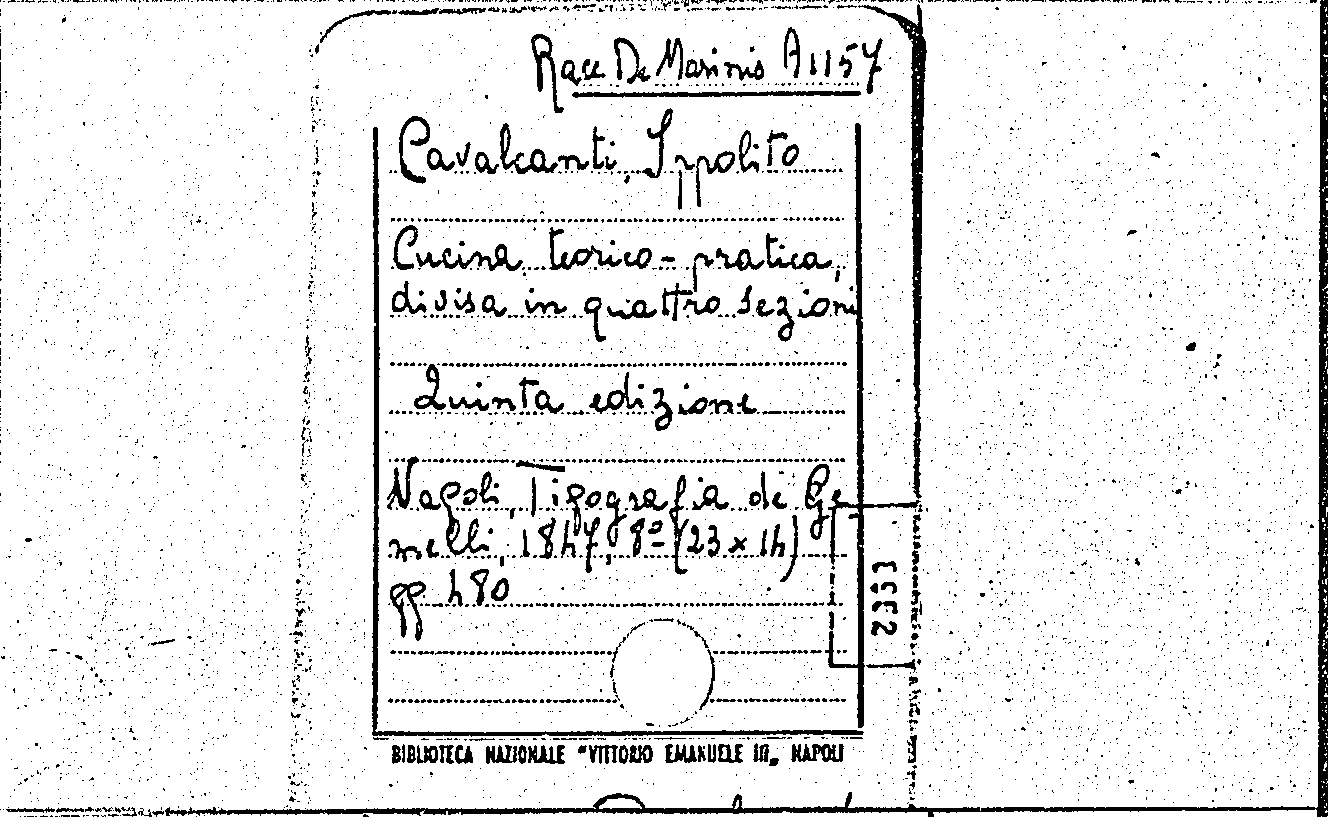 Racc De Marinis A1157
Cavalcanti, Ippolito
Cucina teorico-pratica,
divisa in quattro sezioni
Quinta edizione
Napoli, Tipografia de Ge-
melli, 1847, 8º (23 x 14)
pp 480
2351
BIBLIOTECA NAZIONALE "VITTORIO EMANUELE III„ NAPOLI